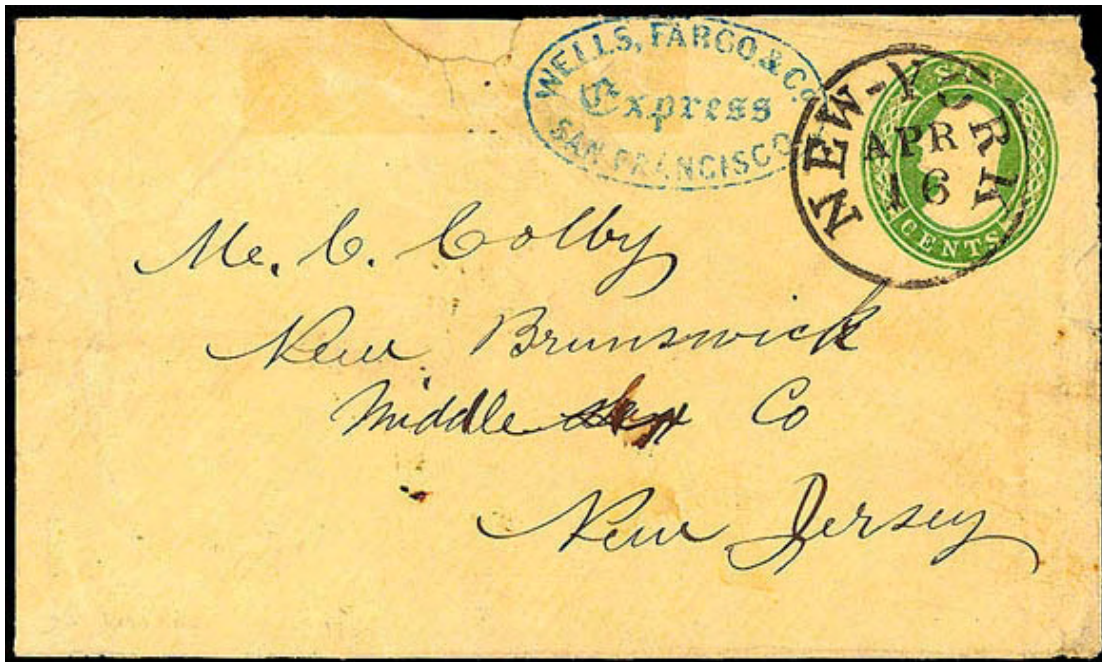 WELLS, FARGO & Co.
Express
SAN FRANCISCO
NEW-YORK
APR
16
SIX
CENTS
Mr. C. Colby
New Brunswick
Middle sex Co
New Jersey